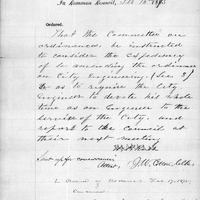 In Common Council, Feb 10 1873
Ordered,
That the Committee on
ordinances, be instructed
to consider the expediency of
so amending the ordinance
on City Engineering (Sec 3)
as to require the City
Engineer to devote his whole
time as an Engineer to the
service of the City, and
report to the Council at
their next meeting
Sent up for concurrence
Attest,
Clerk